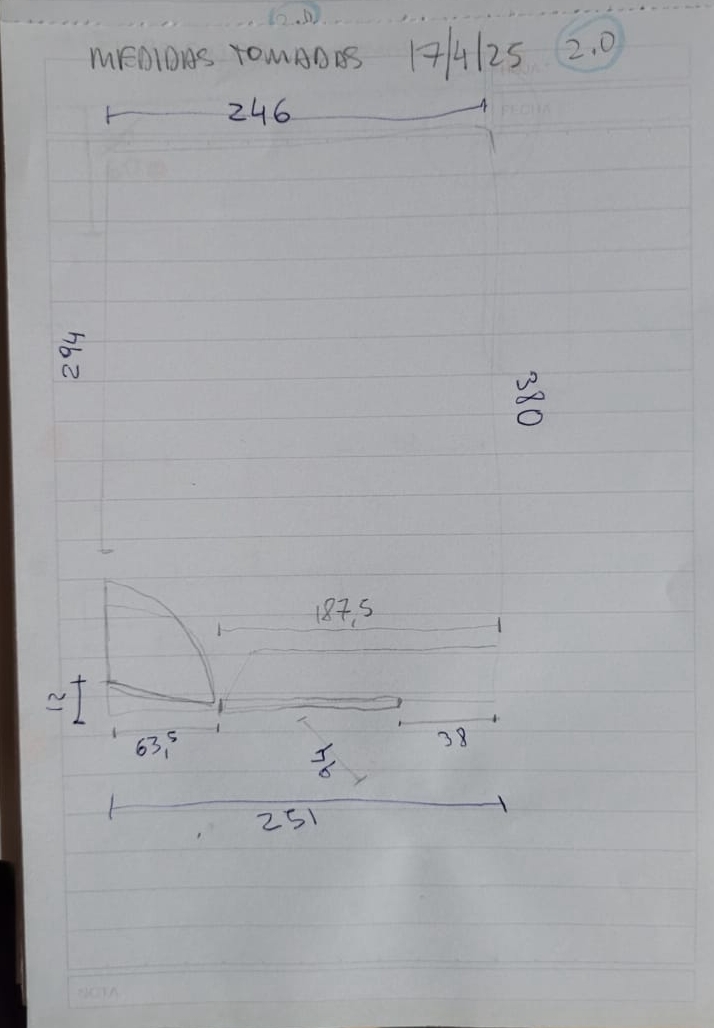 2.0
MEDIDAS TOMADAS 17/4/25 2.0
HOJA
FECHA
246
294
380
187,5
12
63,5
38
251
NOTA